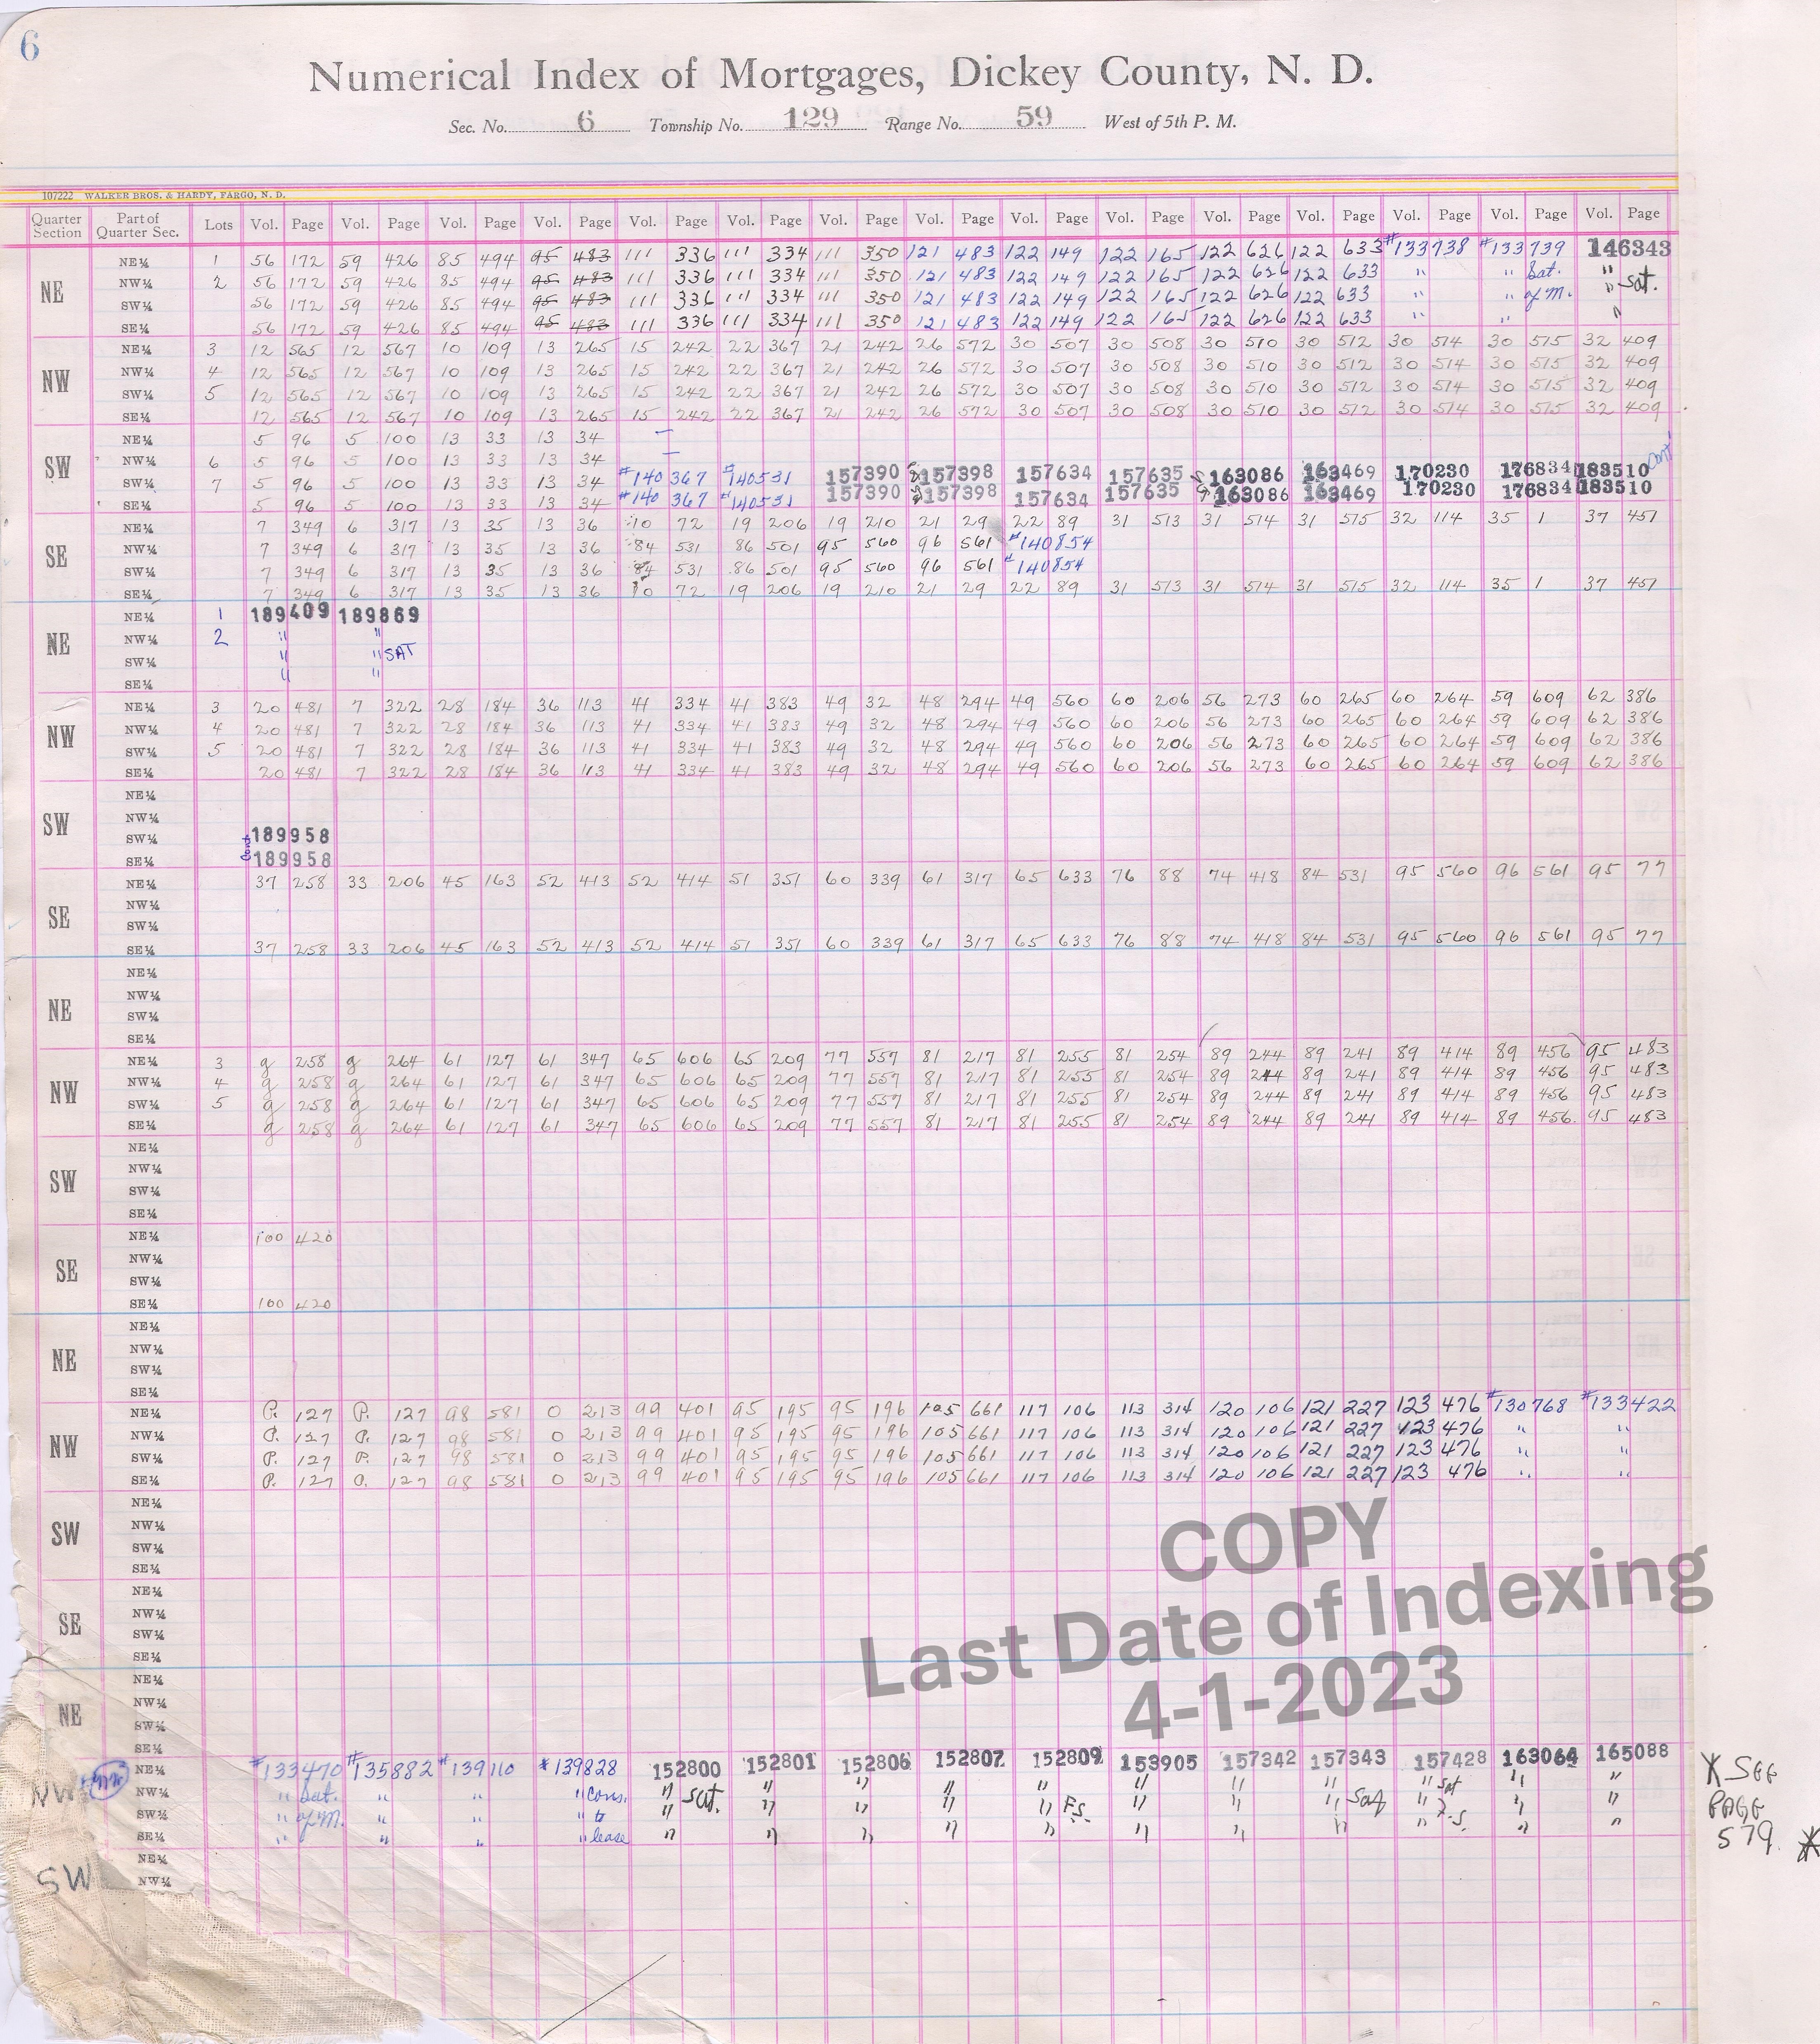 6
Numerical Index of Mortgages, Dickey County, N. D.
Sec. No. 6 Township No. 129 Range No. 59 West of 5th P. M.
107222 WALKER BROS. & HARDY, FARGO, N. D.
Quarter Section Part of Quarter Sec. Lots Vol. Page Vol. Page Vol. Page Vol. Page Vol. Page Vol. Page Vol. Page Vol. Page Vol. Page Vol. Page Vol. Page Vol. Page Vol. Page Vol. Page Vol. Page
NE
NE¼ 1 56 172 59 426 85 494 95 483 111 336 111 334 111 350 121 483 122 149 122 165 122 626 122 633 #133738 #133739 146343
NW¼ 2 56 172 59 426 85 494 95 483 111 336 111 334 111 350 121 483 122 149 122 165 122 626 122 633 " " Sat. " Sat.
SW¼ 56 172 59 426 85 494 95 483 111 336 111 334 111 350 121 483 122 149 122 165 122 626 122 633 " " of M. "
SE¼ 56 172 59 426 85 494 95 483 111 336 111 334 111 350 121 483 122 149 122 165 122 626 122 633 " " "
NW
NE¼ 3 12 565 12 567 10 109 13 265 15 242 22 367 21 242 26 572 30 507 30 508 30 510 30 512 30 514 30 515 32 409
NW¼ 4 12 565 12 567 10 109 13 265 15 242 22 367 21 242 26 572 30 507 30 508 30 510 30 512 30 514 30 515 32 409
SW¼ 5 12 565 12 567 10 109 13 265 15 242 22 367 21 242 26 572 30 507 30 508 30 510 30 512 30 514 30 515 32 409
SE¼ 12 565 12 567 10 109 13 265 15 242 22 367 21 242 26 572 30 507 30 508 30 510 30 512 30 514 30 515 32 409
SW
NE¼ 5 96 5 100 13 33 13 34
NW¼ 6 5 96 5 100 13 33 13 34
SW¼ 7 5 96 5 100 13 33 13 34 #140 367 #140531 157390 157398 157634 157635 163086 163469 170230 176834 183510 Cont
SE¼ 5 96 5 100 13 33 13 34 #140 367 #140531 157390 157398 157634 157635 163086 163469 170230 176834 183510
SE
NE¼ 7 349 6 317 13 35 13 36 10 72 19 206 19 210 21 29 22 89 31 513 31 514 31 515 32 114 35 1 37 451
NW¼ 7 349 6 317 13 35 13 36 84 531 86 501 95 560 96 561 #140854
SW¼ 7 349 6 317 13 35 13 36 84 531 86 501 95 560 96 561 #140854
SE¼ 7 349 6 317 13 35 13 36 10 72 19 206 19 210 21 29 22 89 31 513 31 514 31 515 32 114 35 1 37 451
NE
NE¼ 1 189409 189869
NW¼ 2 " "
SW¼ " " SAT
SE¼ " "
NW
NE¼ 3 20 481 7 322 28 184 36 113 41 334 41 383 49 32 48 294 49 560 60 206 56 273 60 265 60 264 59 609 62 386
NW¼ 4 20 481 7 322 28 184 36 113 41 334 41 383 49 32 48 294 49 560 60 206 56 273 60 265 60 264 59 609 62 386
SW¼ 5 20 481 7 322 28 184 36 113 41 334 41 383 49 32 48 294 49 560 60 206 56 273 60 265 60 264 59 609 62 386
SE¼ 20 481 7 322 28 184 36 113 41 334 41 383 49 32 48 294 49 560 60 206 56 273 60 265 60 264 59 609 62 386
SW
NE¼
NW¼
SW¼ 189958
SE¼ Cont 189958
SE
NE¼ 37 258 33 206 45 163 52 413 52 414 51 351 60 339 61 317 65 633 76 88 74 418 84 531 95 560 96 561 95 77
NW¼
SW¼
SE¼ 37 258 33 206 45 163 52 413 52 414 51 351 60 339 61 317 65 633 76 88 74 418 84 531 95 560 96 561 95 77
NE
NE¼
NW¼
SW¼
SE¼
NW
NE¼ 3 g 258 g 264 61 127 61 347 65 606 65 209 77 557 81 217 81 255 81 254 89 244 89 241 89 414 89 456 95 483
NW¼ 4 g 258 g 264 61 127 61 347 65 606 65 209 77 557 81 217 81 255 81 254 89 244 89 241 89 414 89 456 95 483
SW¼ 5 g 258 g 264 61 127 61 347 65 606 65 209 77 557 81 217 81 255 81 254 89 244 89 241 89 414 89 456 95 483
SE¼ g 258 g 264 61 127 61 347 65 606 65 209 77 557 81 217 81 255 81 254 89 244 89 241 89 414 89 456 95 483
SW
NE¼
NW¼
SW¼
SE¼
SE
NE¼ 100 420
NW¼
SW¼
SE¼ 100 420
NE
NE¼
NW¼
SW¼
SE¼
NW
NE¼ P. 127 P. 127 98 581 0 213 99 401 95 195 95 196 105 661 117 106 113 314 120 106 121 227 123 476 #130768 #133422
NW¼ P. 127 P. 127 98 581 0 213 99 401 95 195 95 196 105 661 117 106 113 314 120 106 121 227 123 476 " "
SW¼ P. 127 P. 127 98 581 0 213 99 401 95 195 95 196 105 661 117 106 113 314 120 106 121 227 123 476 " "
SE¼ P. 127 P. 127 98 581 0 213 99 401 95 195 95 196 105 661 117 106 113 314 120 106 121 227 123 476 " "
SW
NE¼
NW¼
SW¼
SE¼
SE
NE¼
NW¼
SW¼
SE¼
COPY
Last Date of Indexing
4-1-2023
NE
NE¼
NW¼
SW¼
SE¼
NW NW
NE¼ #133470 #135882 #139110 #139828 152800 152801 152806 152807 152809 153905 157342 157343 157428 163064 165088
NW¼ " Sat. " " " Cons. " Sat. " " " " " " " " Sat " "
SW¼ " of M. " " " to " " " " " F.S. " " " Sat " F.S. " "
SE¼ " " " " lease " " " " " " " " " " "
SW
NE¼
NW¼
* SEE
PAGE
579. *